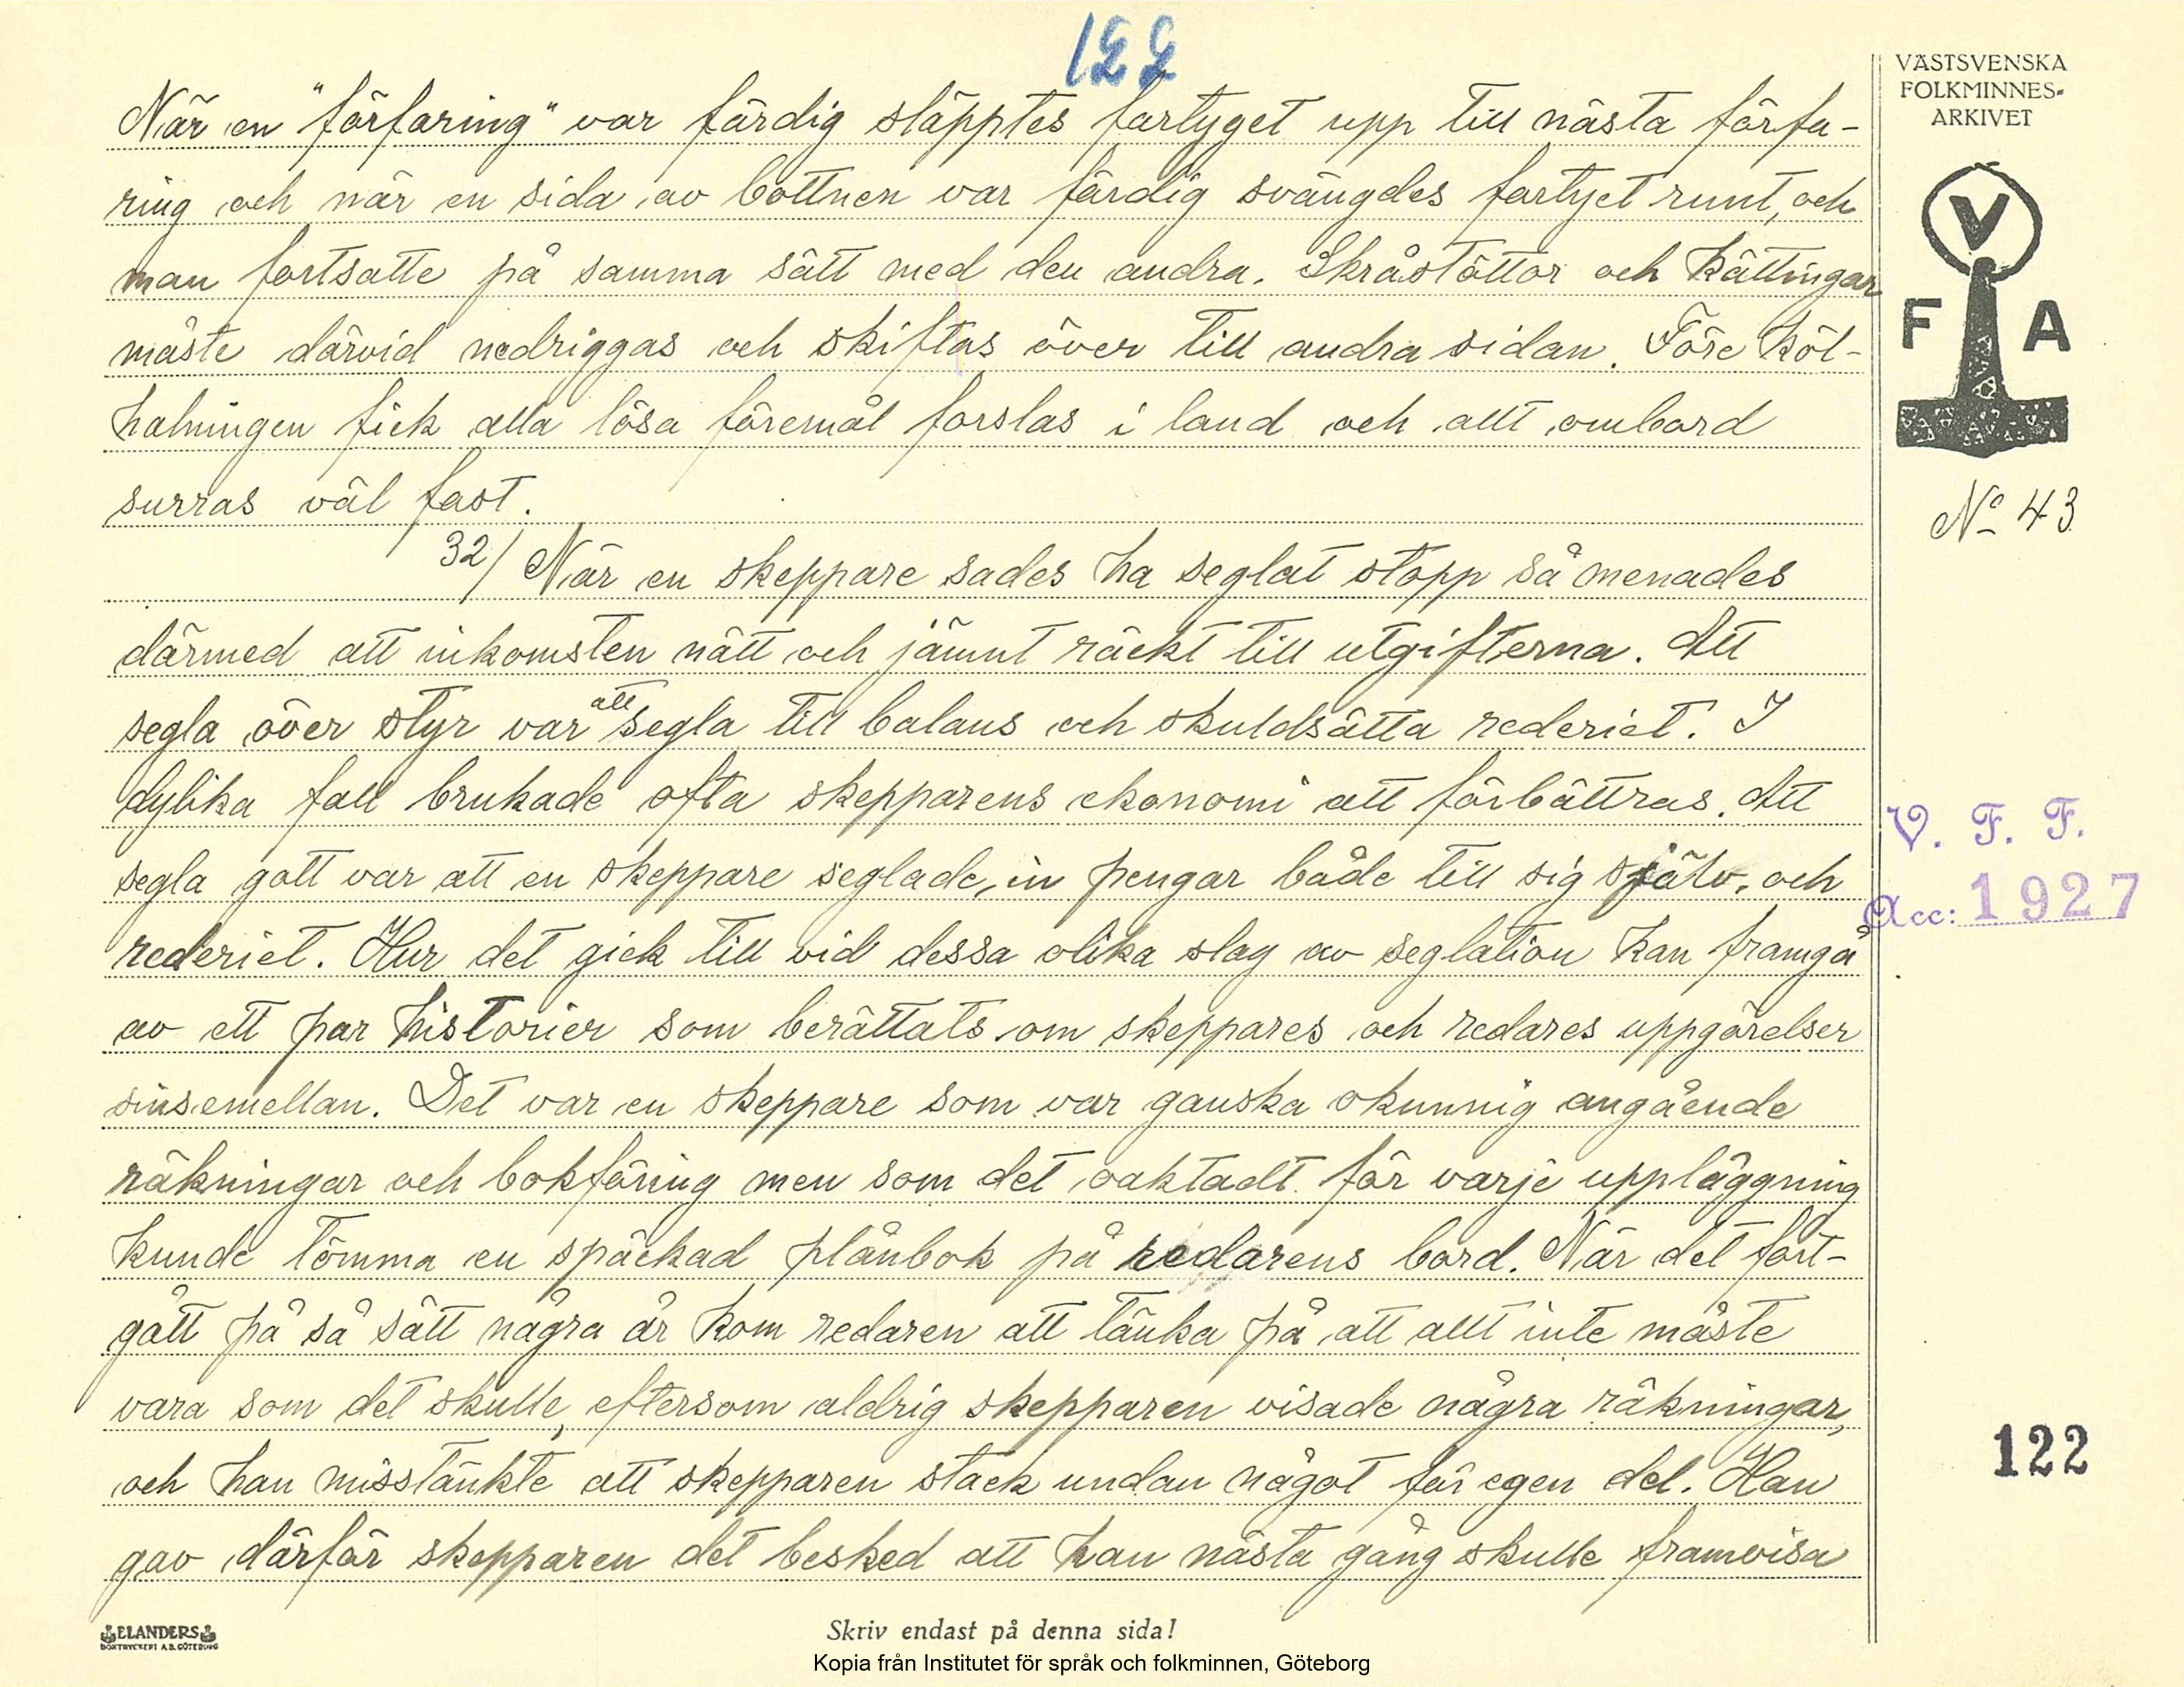 122
När en "förfaring" var färdig släpptes fartyget upp till nästa förfa-
ring och när en sida av bottnen var färdig svängdes fartyet runt, och
man fortsatte på samma sätt med den andra. Skråstöttor och kättingar
måste därvid nedriggas och skiftas över till andra sidan. Före köl-
halningen fick alla lösa föremål forslas i land och allt ombord
surras väl fast.
32/ När en skeppare sades ha seglat stopp så menades
därmed att inkomsten nätt och jämnt räckt till utgifterna. Att
segla över styr var att segla till balans och skuldsätta rederiet. I
dylika fall brukade ofta skepparens ekonomi att förbättras. Att
segla gott var att en skeppare seglade in pengar både till sig själv, och
rederiet. Hur det gick till vid dessa olika slag av seglation kan framgå
av ett par historier som berättats om skeppares och redares uppgörelser
sinsemellan. Det var en skeppare som var ganska okunnig angående
räkningar och bokföring men som det oaktadt för varje uppläggning
kunde tömma en späckad plånbok på redarens bord. När det fort-
gått på så sätt några år kom redaren att tänka på att allt inte måste
vara som det skulle, eftersom aldrig skepparen visade några räkningar,
och han misstänkte att skepparen stack undan något för egen del. Han
gav därför skepparen det besked att han nästa gång skulle framvisa
VÄSTSVENSKA
FOLKMINNES-
ARKIVET
V
F A
No 43
V. F. F.
Acc: 1927
122
ELANDERS
BOKTRYCKERI A.B. GÖTEBORG
Skriv endast på denna sida!
Kopia från Institutet för språk och folkminnen, Göteborg